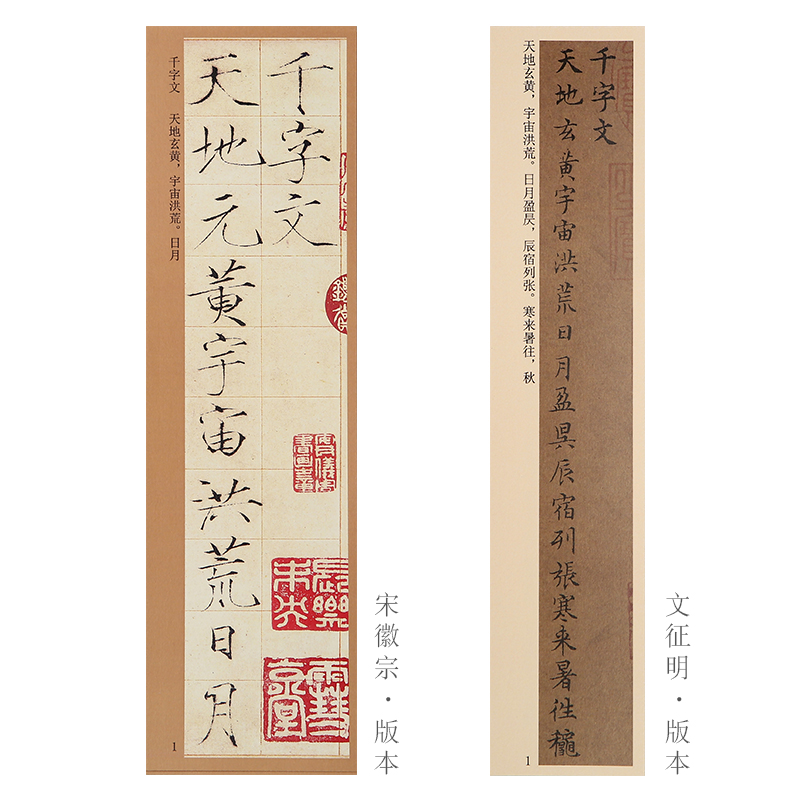 千字文
天地元黄宇宙洪荒日月
千字文 天地玄黄，宇宙洪荒。日月
1
宋徽宗·版本
千字文
天地玄黄宇宙洪荒日月盈昃辰宿列張寒来暑往龝
天地玄黄，宇宙洪荒。日月盈昃，辰宿列张。寒来暑往，秋
1
文征明·版本